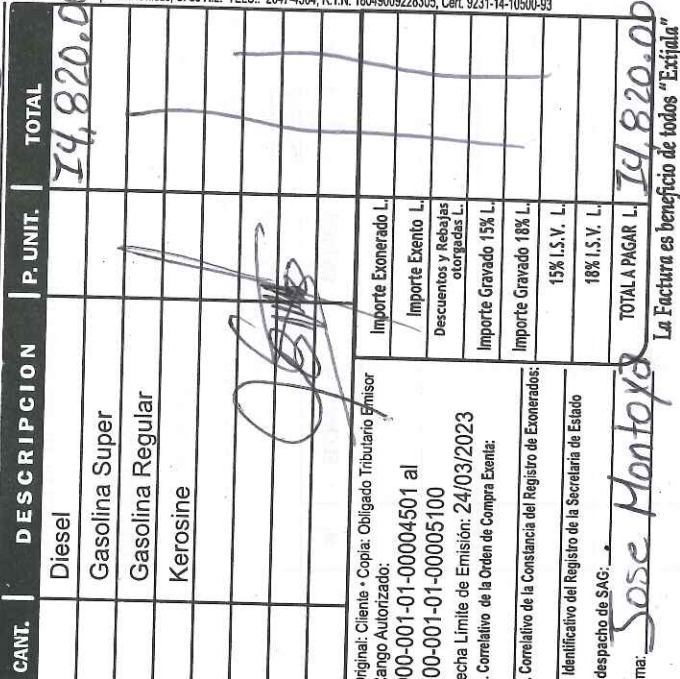 R.T.N. 18049009228305, Cert. 9231-14-10500-93
CANT. DESCRIPCION P. UNIT. TOTAL
Diesel 14,820.00
Gasolina Super
Gasolina Regular
Kerosine
riginal: Cliente • Copia: Obligado Tributario Emisor
ango Autorizado:
000-001-01-00004501 al
00-001-01-00005100
echa Límite de Emisión: 24/03/2023
. Correlativo de la Orden de Compra Exenta:
. Correlativo de la Constancia del Registro de Exonerados:
Identificativo del Registro de la Secretaria de Estado
despacho de SAG:
ma: Jose Montoya
Importe Exonerado L.
Importe Exento L.
Descuentos y Rebajas
otorgadas L.
Importe Gravado 15% L.
Importe Gravado 18% L.
15% I.S.V. L.
18% I.S.V. L.
TOTAL A PAGAR L. 14,820.00
La Factura es beneficio de todos "Exíjala"